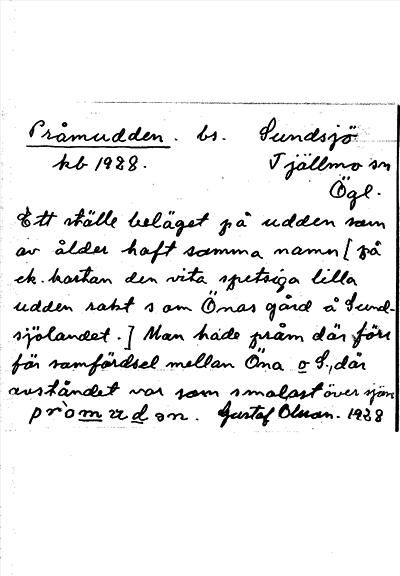 Pråmudden. bs. Sundsjö
kb 1928. Tjällmo sn
Ögl.
Ett ställe beläget på udden som
av ålder haft samma namn [på
ek. kartan den vita spetsiga lilla
udden rakt s om Önas gård å Sund-
sjölandet.] Man hade pråm där förr
för samfärdsel mellan Öna o S., där
avståndet var som smalast över sjön
pròmudən. Gustaf Olsson. 1928